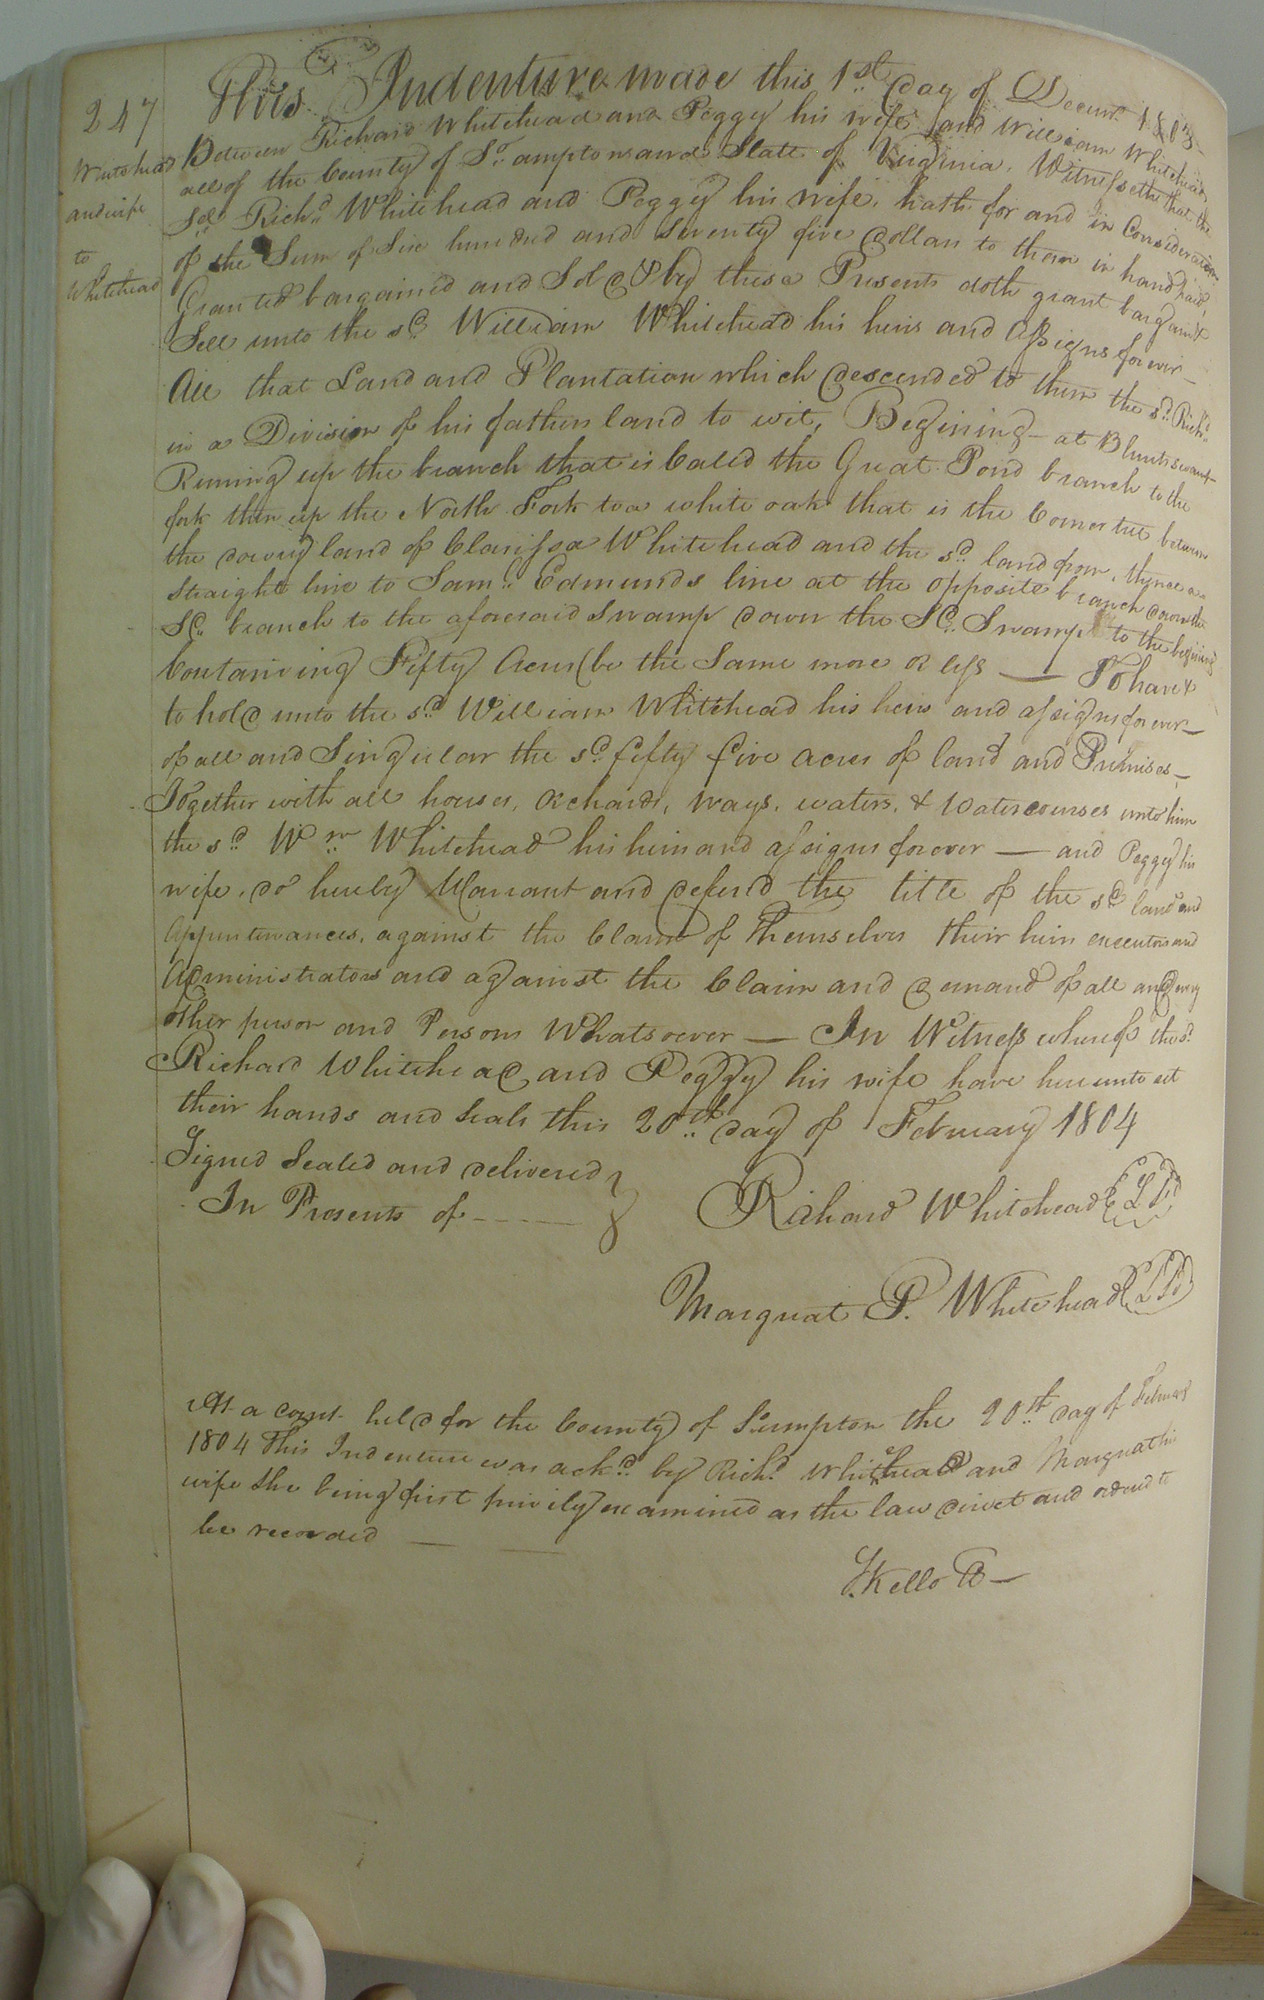 247
Whitehead
and wife
to
Whitehead
This Indenture made this 1st day of Decemr. 1803
Between Richard Whitehead and Peggy his wife and William Whitehead
all of the County of So.ampton and State of Virginia. Witnesseth that the
sd. Richd. Whitehead and Peggy his wife, hath for and in Consideration
of the Sum of Six hundred and Seventy five dollars to them in hand paid,
Granted bargained and Sold & by these Presents doth grant bargain &
Sell unto the sd. William Whitehead his heirs and assigns forever
All that Land and Plantation which descended to them the sd. Richd.
in a Division of his fathers land to wit, Begining at Blunts swamp
Runing up the branch that is Caled the Great Pond branch to the
fork then up the North Fork to a white oak that is the Corner tree between
the dowry land of Clarissa Whitehead and the sd. land from, thence a
straight line to Saml. Edmunds line at the opposite branch down the
Sd. branch to the aforesaid Swamp down the Sd. Swamp to the begining
Containing Fifty Acres (be the Same more or less — To have &
to hold unto the sd. William Whitehead his heirs and assigns forever
of all and Singular the sd. fifty five acres of land and Premises
Together with all houses, orchards, ways, waters, & Watercourses unto him
the sd. Wm. Whitehead his heirs and assigns forever — and Peggy his
wife, do hereby Warrant and defend the title of the sd. land and
Appurtenances, against the Claim of Themselves their heirs executors and
Administrators and against the Claim and demand of all and every
other person and Persons Whatsoever — In Witness whereof the sd.
Richard Whitehead and Peggy his wife have hereunto set
their hands and seals this 20th. day of February 1804
Signed Sealed and delivered
In Presents of
Richard Whitehead LS
Margreat P. Whitehead LS
At a court held for the County of Soumpton the 20th. day of February
1804 This Indenture was ackd. by Richd. Whitehead and Margreat his
wife She being first privily examined as the law direct and ordered to
be recorded
S. Kello Cl